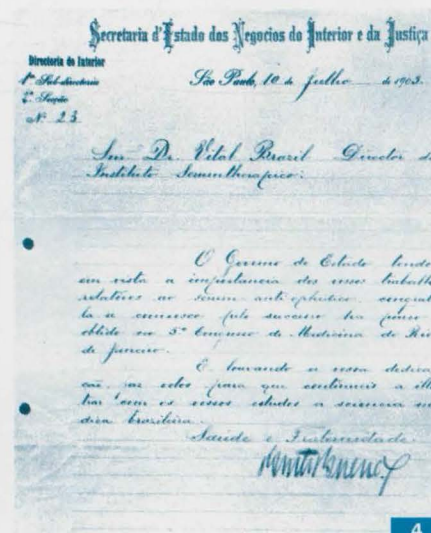 Secretaria d'Estado dos Negocios do Interior e da Justiça
Directoria do Interior
1ª Sub-directoria
2ª Secção
Nº 23
São Paulo, 10 de Julho de 1903.
Snr. Dr. Vital Brazil Director do
Instituto Serumtherapico:
O Governo do Estado tendo
em vista a importancia dos vossos trabalhos
relativos ao serum anti ophidico, congratula
la-se comvosco pelo successo ha pouco
obtido no 5º Congresso de Medicina do Rio
de Janeiro.
E louvando a vossa dedica
ção, faz votos para que continueis a illus
trar com os vossos estudos a sciencia me
dica brazileira.
Saúde e Fraternidade.
4